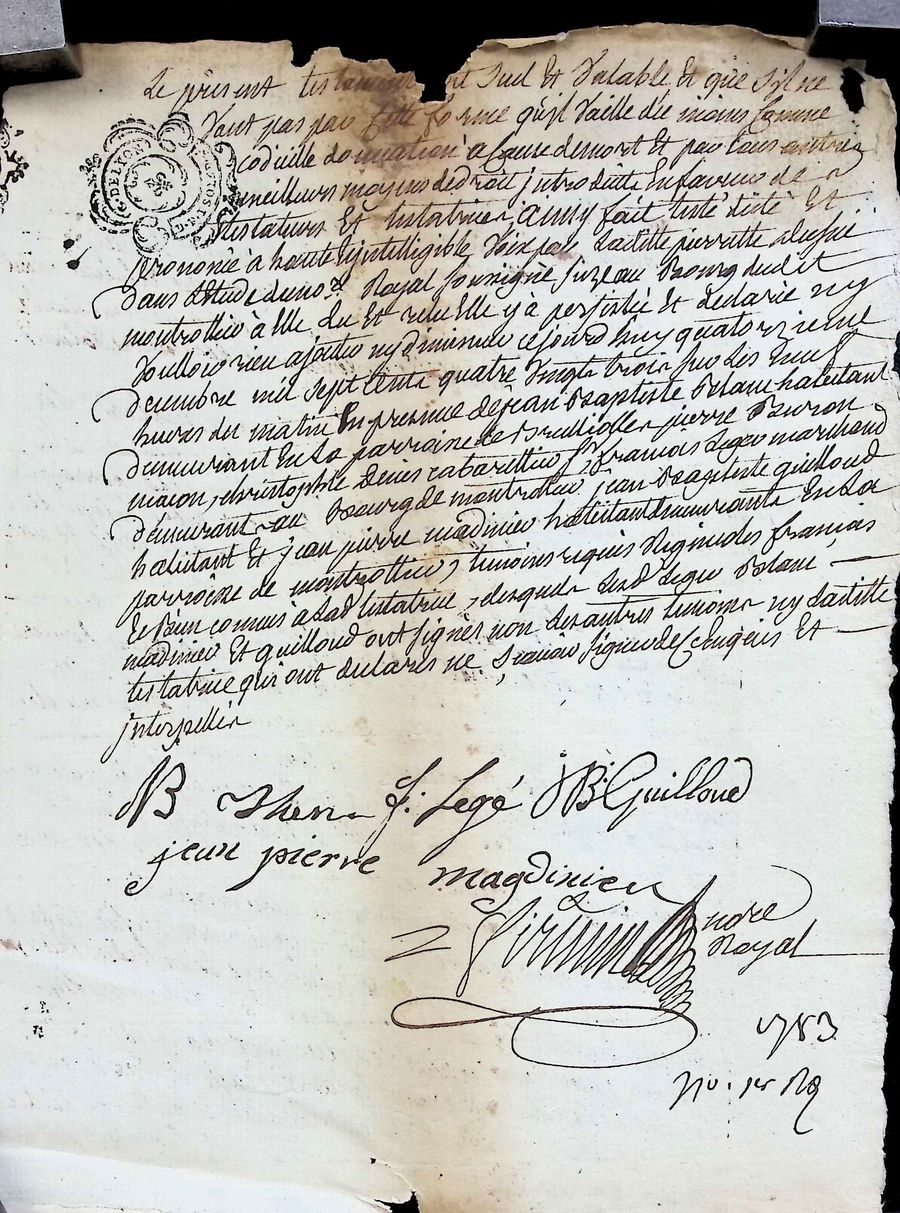 Le present testament soit seul Et Valable Et que s'il ne
Vaut pas par cette forme qu'il Vaille du moins comme
codicille donnation à Cause de mort Et par tous autres
meilleurs moyens de droit jntroduits En faveur des
testateurs Et testatrices ainsy fait testé dicté Et
prononcé à haute & jntelligible Voix par Laditte pierrette
dans L'Etude du no.re Royal soussigné size au Bourg dudit
montrottier à Elle Lu Et relu Elle y a persistée Et declarée ny
Voulloir rien ajouter ny diminuer cejourd'huy quatorzieme
decembre mil sept cents quatre Vingts trois sur Les neuf
heures du matin En presence de jean Baptiste Blanc habitant
demeurant En La parroisse de Brullioles pierre Buron
macon, christophle Denis cabarettier s.r françois Leger marchand
demeurants au Bourg de montrottier jean Baptiste guilloud
habitant Et jean pierre madinier habitant demeurants En La
parroisse de montrottier, temoins requis Regnicoles françois
Et Bien connus à Lad. testatrice, desquels Lesd. Leger Blanc
madinier Et guilloud ont signés non Les autres temoins ny Laditte
testatrice qui ont declarés ne sçavoir signer de ce Enquis Et
jnterpellés
JB F: Legé JB: Guilloud
jean pierre magdinier
no.re
Royal
1783